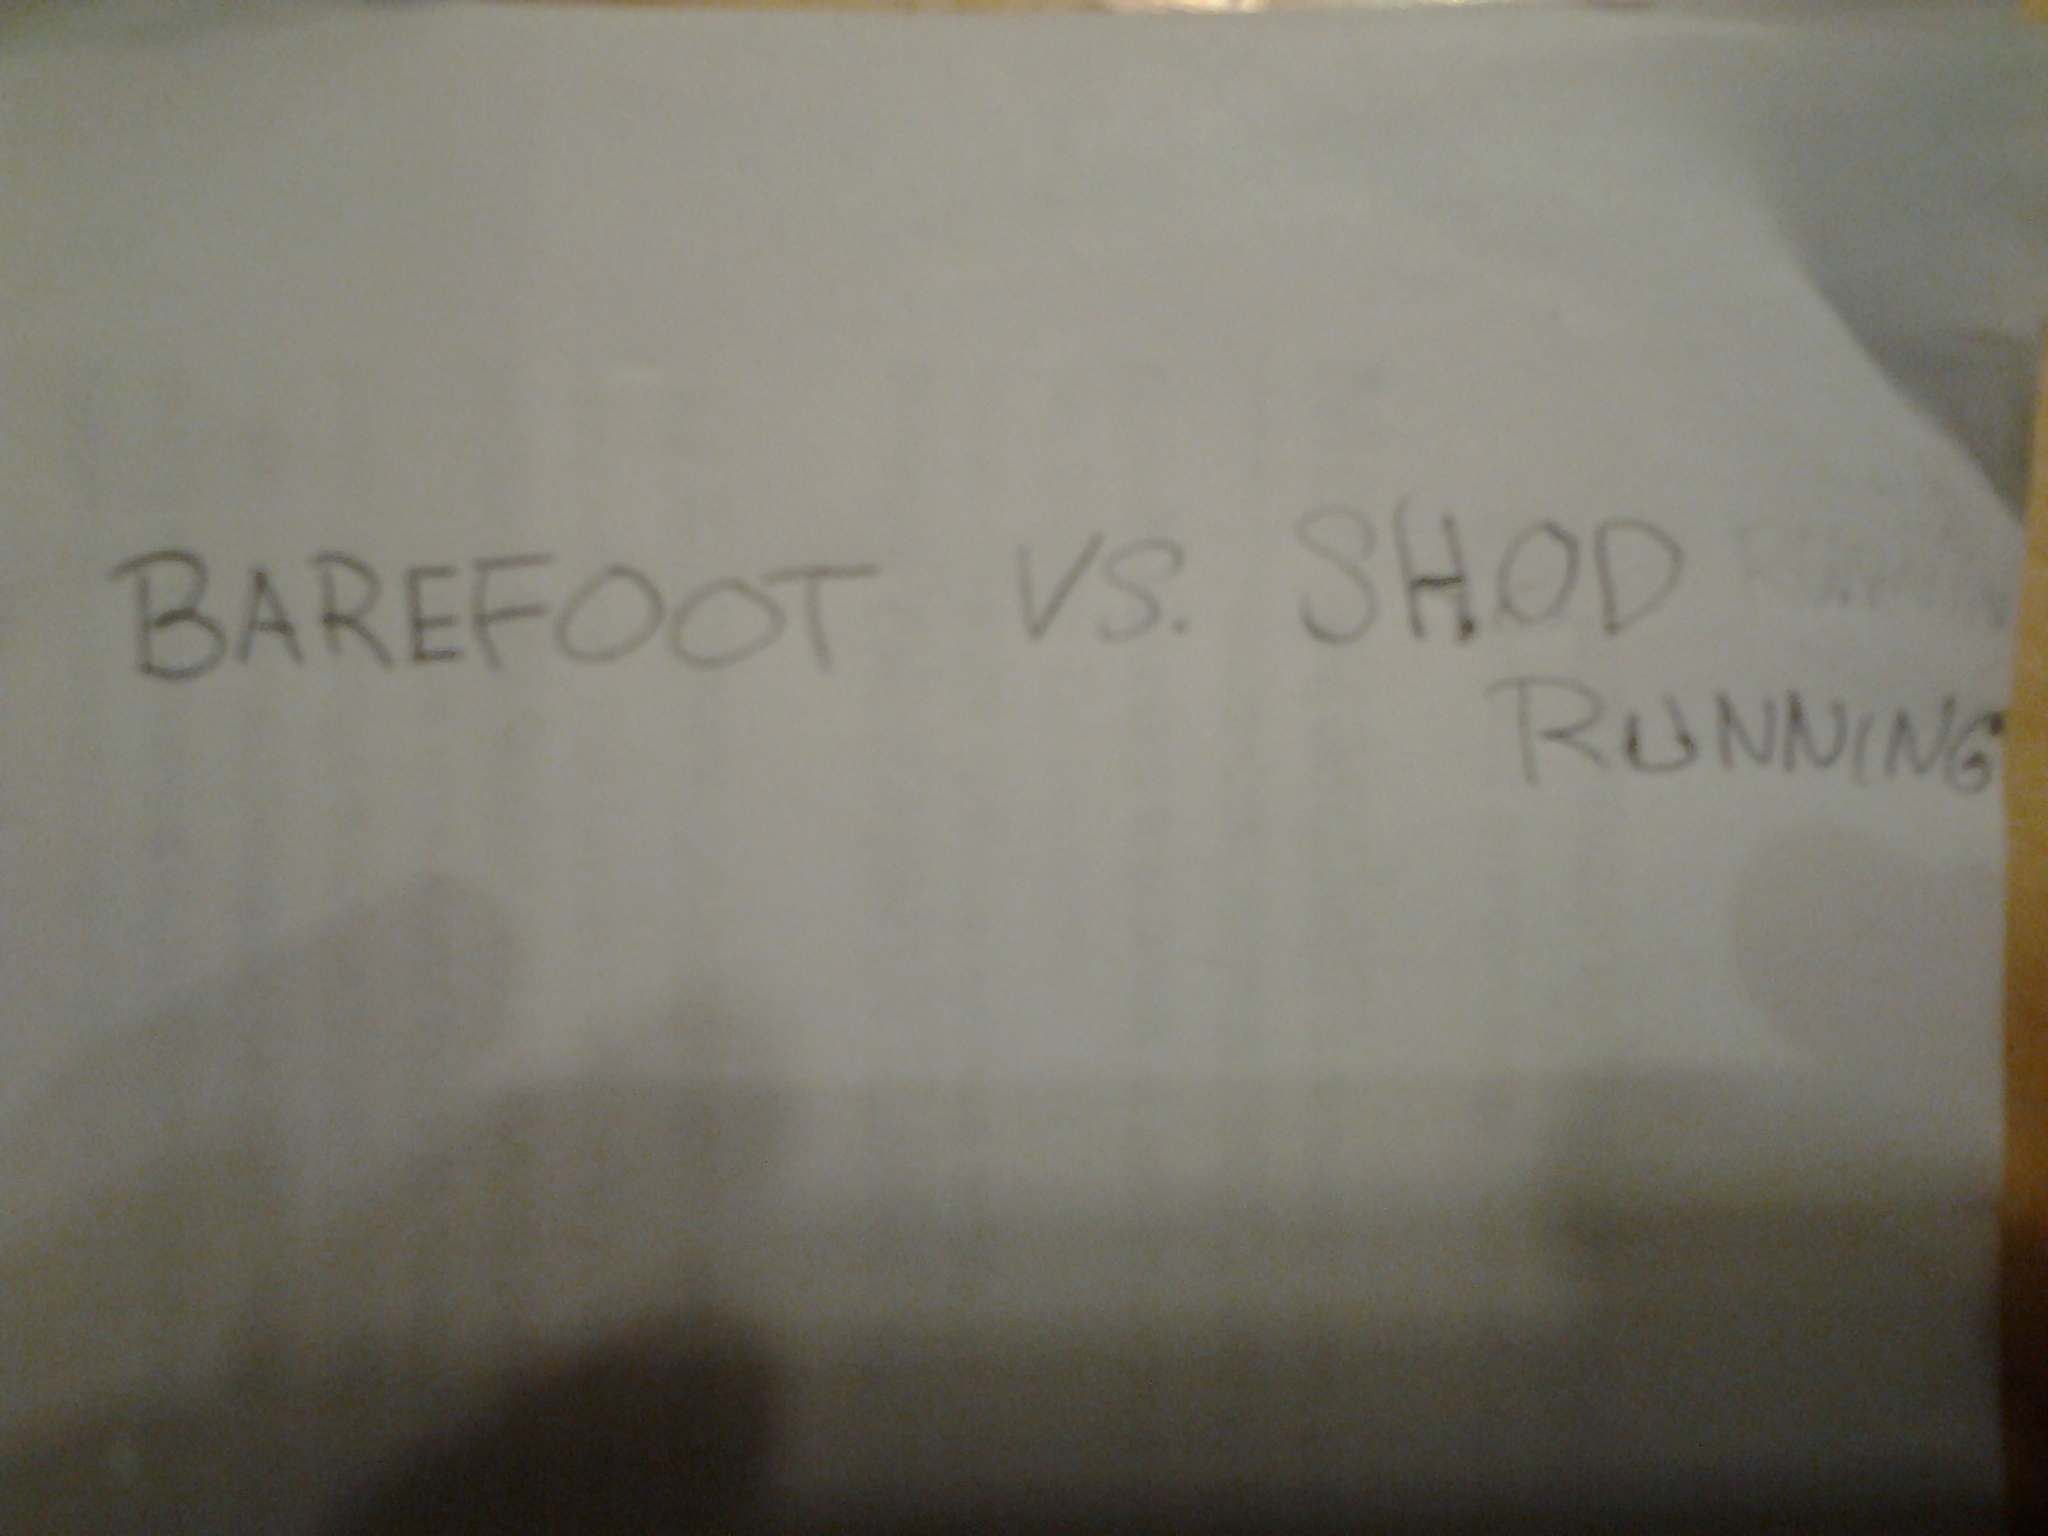 BAREFOOT VS. SHOD
RUNNING